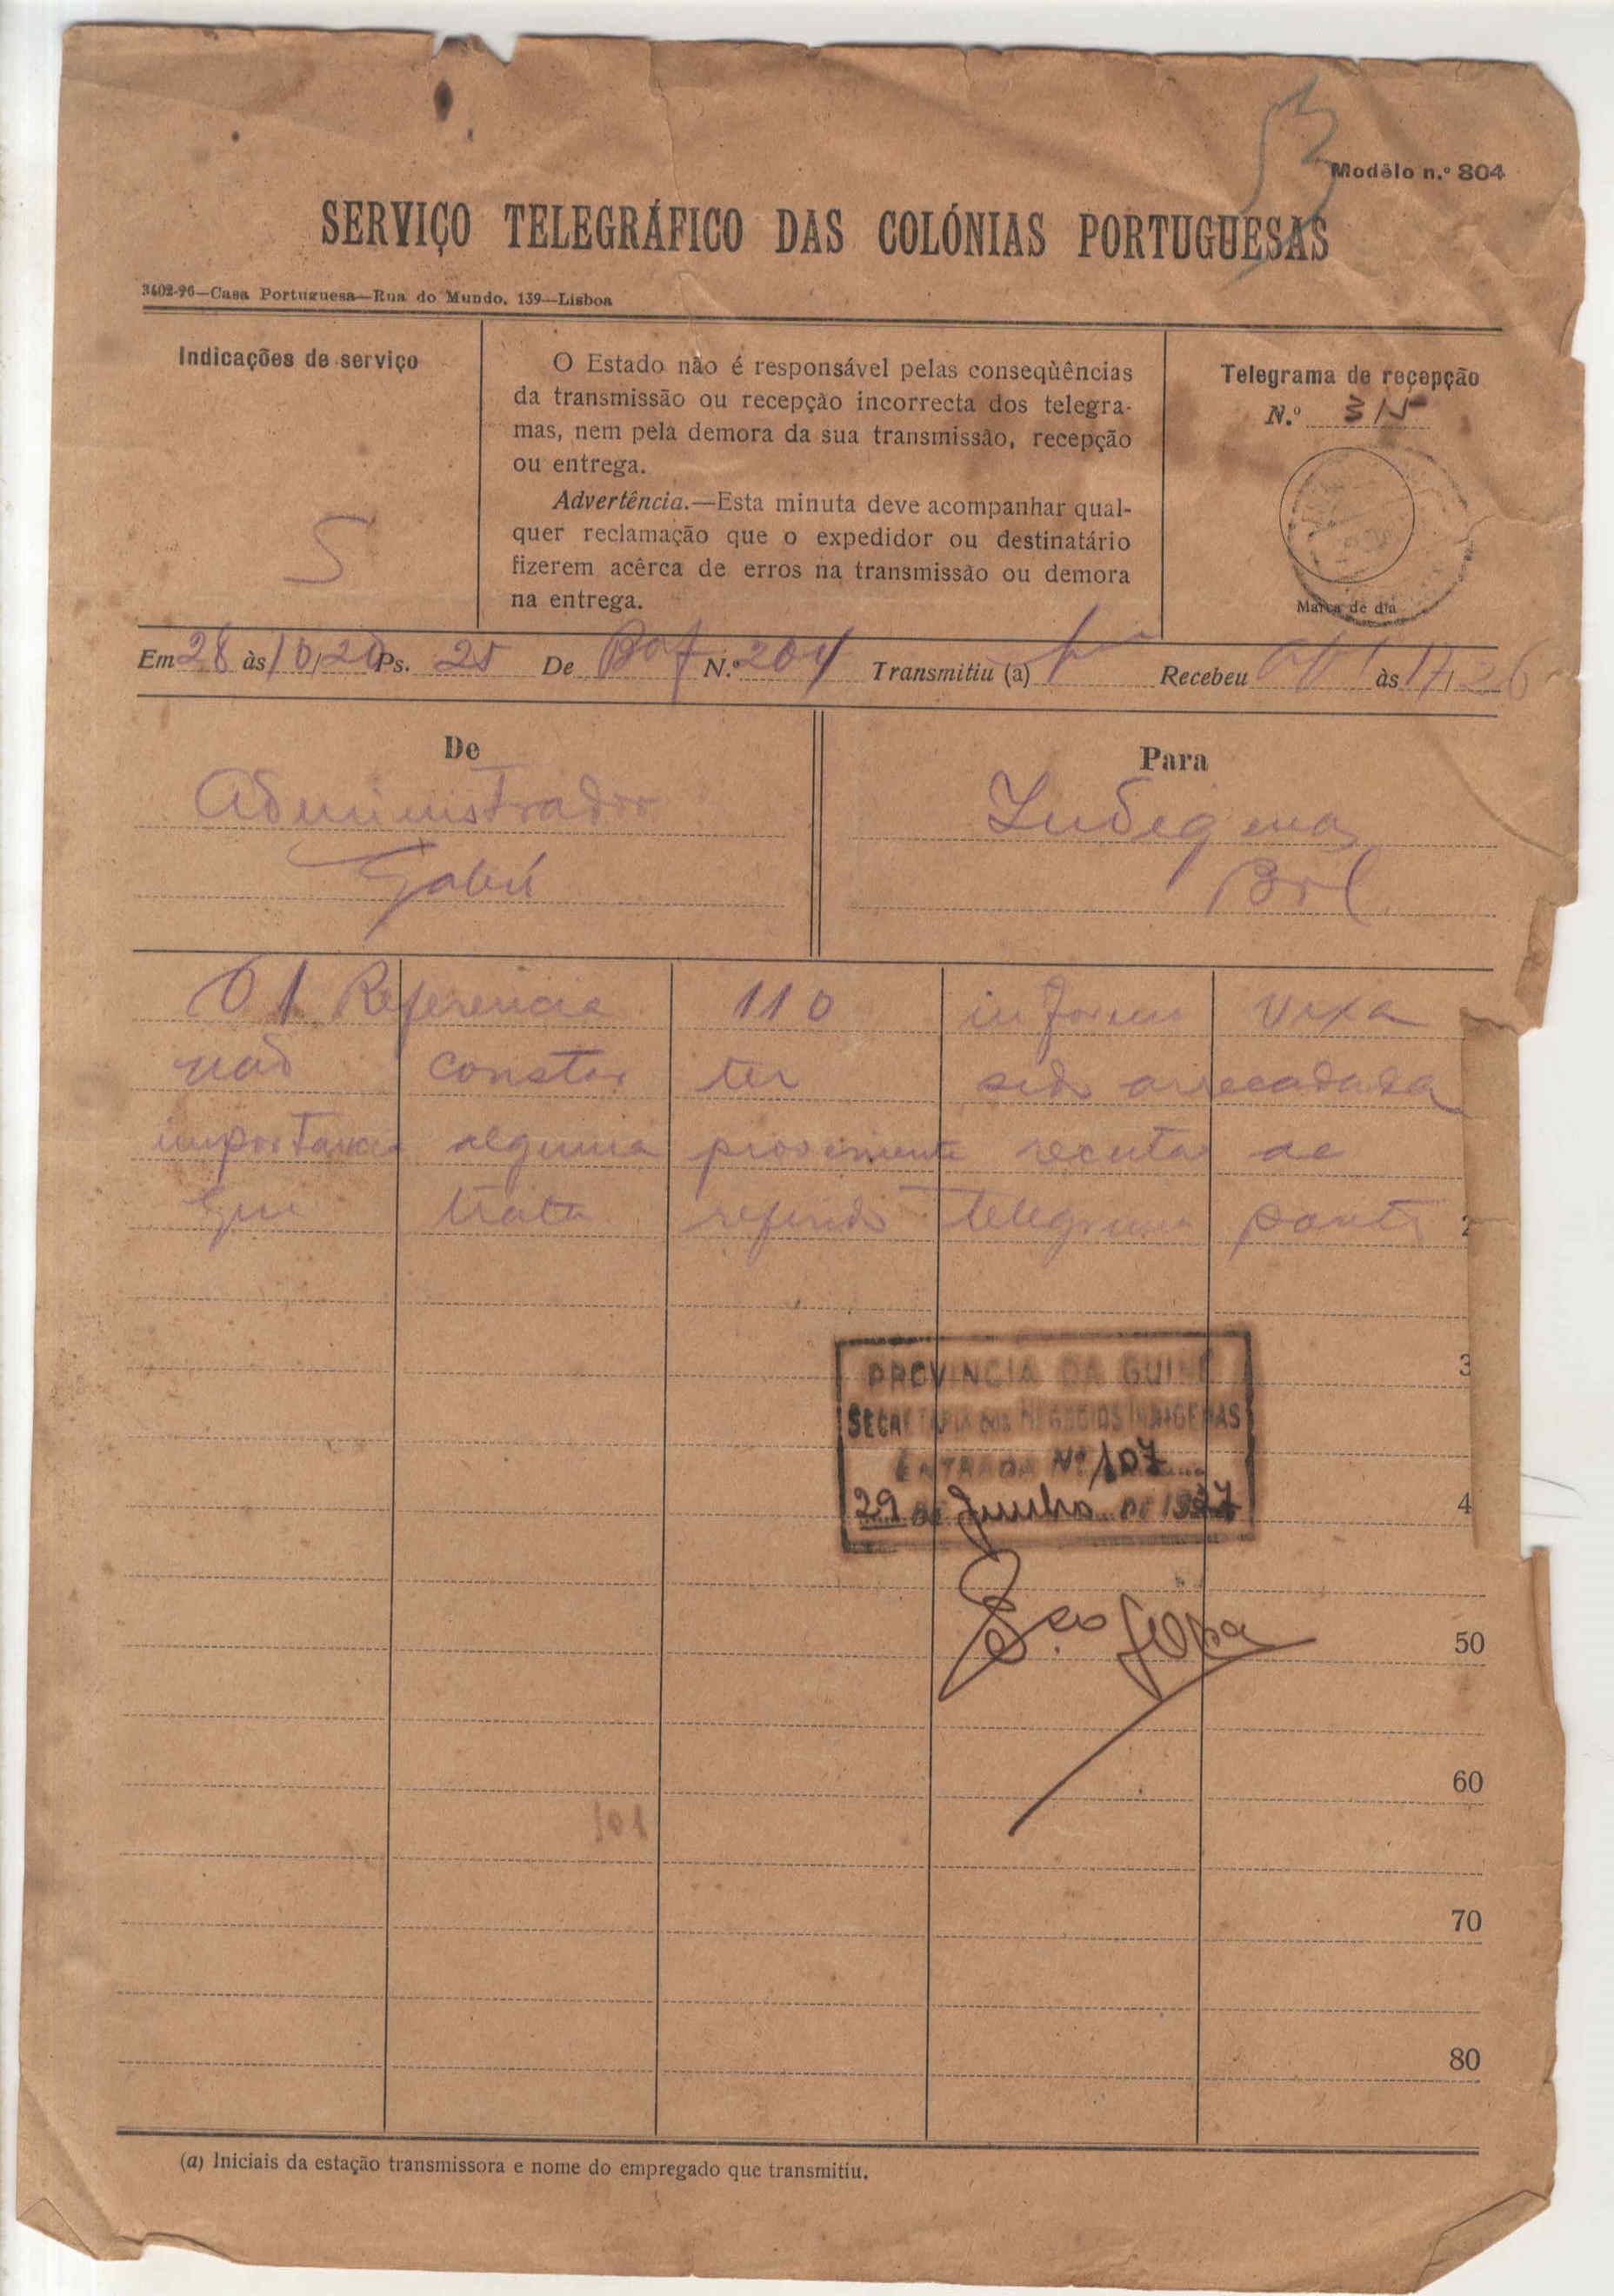 53
Modêlo n.º 804
SERVIÇO TELEGRÁFICO DAS COLÓNIAS PORTUGUESAS
3402-96—Casa Portuguesa—Rua do Mundo, 139—Lisboa
Indicações de serviço
S
O Estado não é responsável pelas conseqùências
da transmissão ou recepção incorrecta dos telegra-
mas, nem pela demora da sua transmissão, recepção
ou entrega.
Advertência.—Esta minuta deve acompanhar qual-
quer reclamação que o expedidor ou destinatário
fizerem acêrca de erros na transmissão ou demora
na entrega.
Telegrama de recepção
N.º
Marca de dia
Em 28 às 10,20 Ps. 25 De Baf N.º 204 Transmitiu (a) Recebeu às 17,26
De
Administrador
Gabú
Para
Indigenas
Bol
01 Referencia 110 informo vexa
não constar ter sido arrecadada
importancia alguma proveniente receita de
que trata referido telegrama ponto
3
4
PROVINCIA DA GUINÉ
SECRETARIA DOS NEGOCIOS INDIGENAS
ENTRADA Nº 107
29 DE Junho DE 1927
50
60
101
70
80
(a) Iniciais da estação transmissora e nome do empregado que transmitiu.